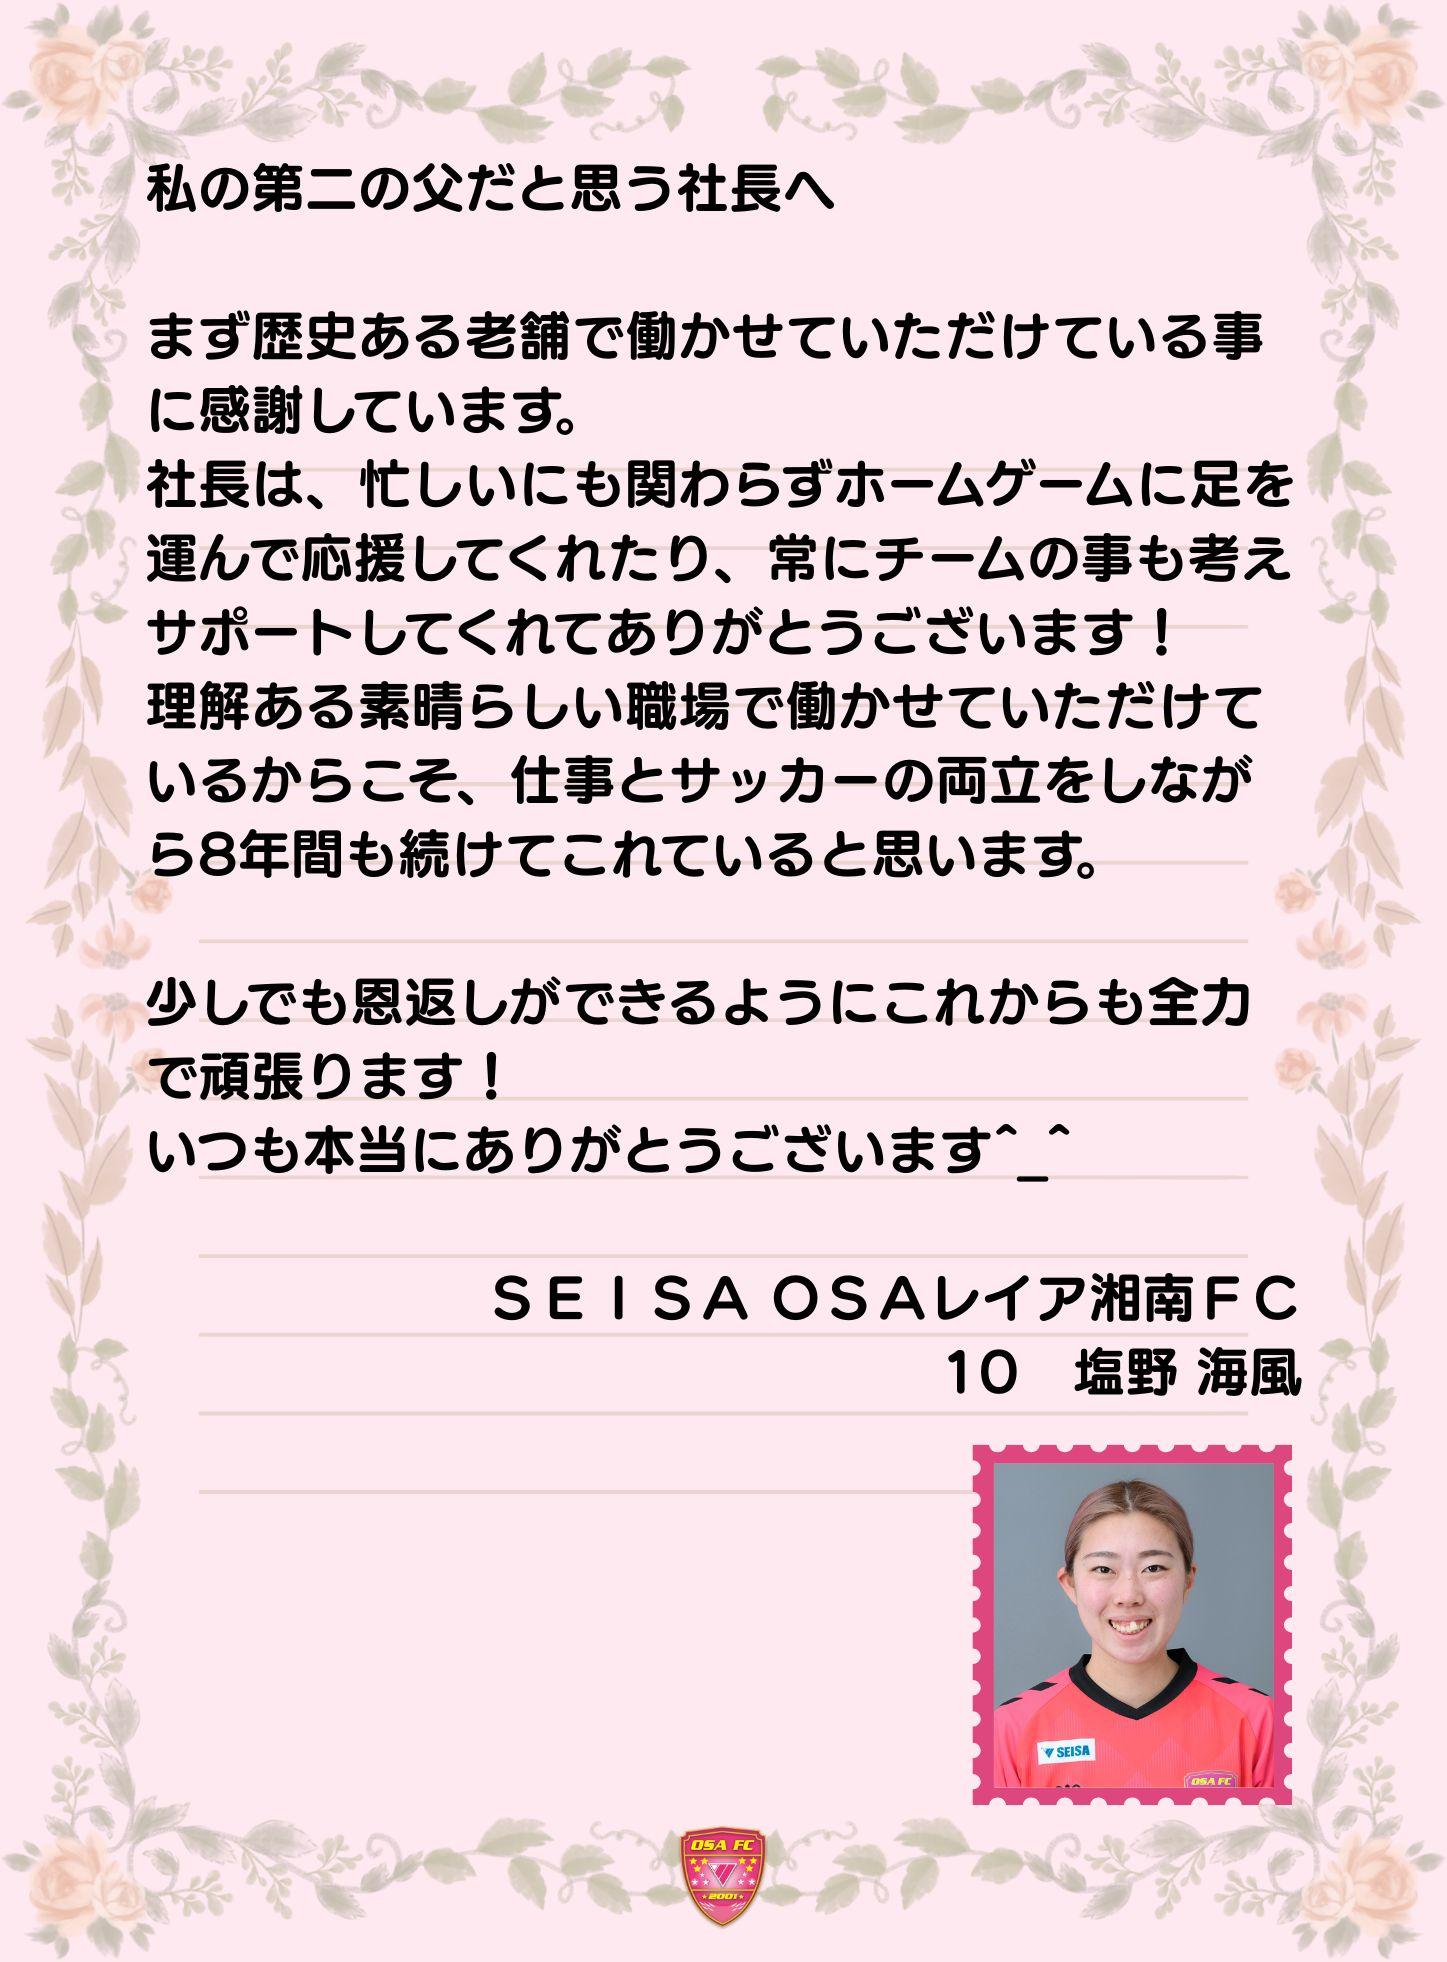 私の第二の父だと思う社長へ
まず歴史ある老舗で働かせていただけている事
に感謝しています。
社長は、忙しいにも関わらずホームゲームに足を
運んで応援してくれたり、常にチームの事も考え
サポートしてくれてありがとうございます！
理解ある素晴らしい職場で働かせていただけて
いるからこそ、仕事とサッカーの両立をしなが
ら8年間も続けてこれていると思います。
少しでも恩返しができるようにこれからも全力
で頑張ります！
いつも本当にありがとうございます^_^
ＳＥＩＳＡ ＯＳＡレイア湘南ＦＣ
10　塩野 海風
SEISA
OSA FC
OSA FC
2001